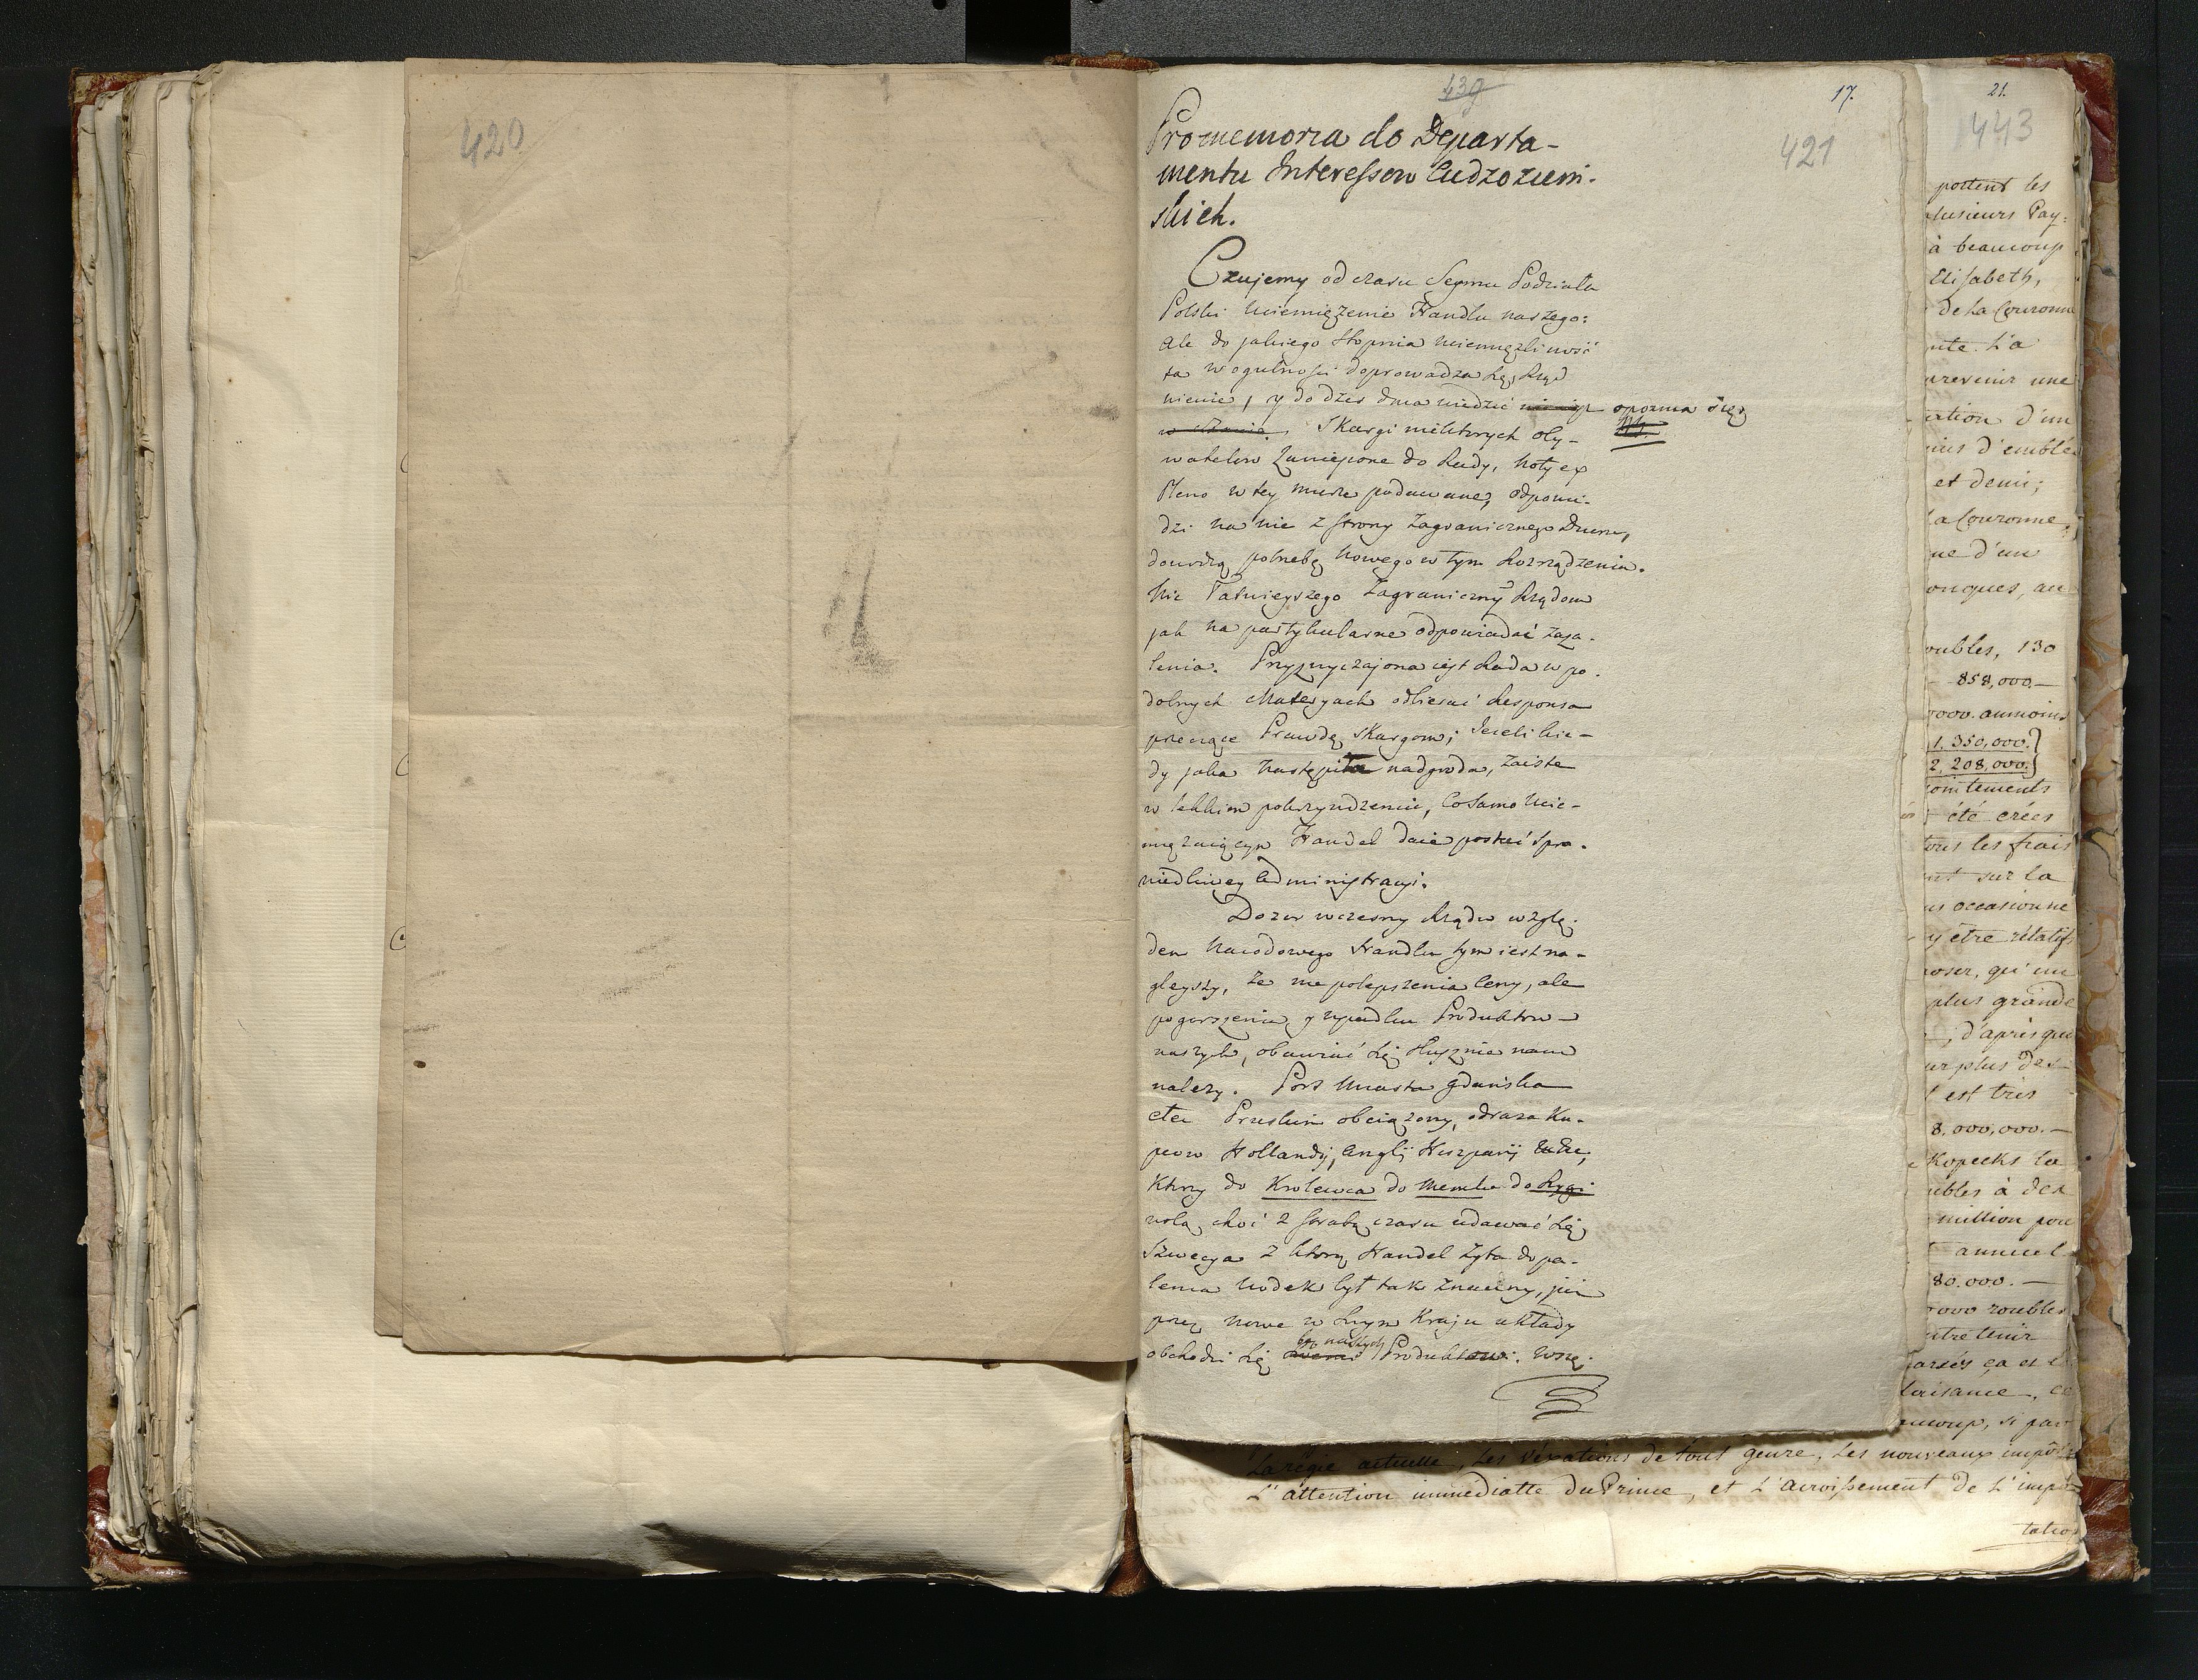 420
439
17.
421
Promemoria do Departa-
mentu Interessow Cudzoziem-
skich.
Czujemy od czasu Seymu Podziału
Polski uciemiężenie Handlu naszego:
ale do jakiego stopnia uciemiężliwość
ta w ogulności doprowadza się, Rząd
niewie, y do dziś dnia wiedzieć opoznia się
Skargi niektorych oby-
watelow zaniesione do Rady, Noty ex
Pleno w tey mierze podawane, odpowie-
dzi na nie z strony Zagranicznego Dworu,
dowodzą potrzebę nowego w tym Rozrządzenia.
Nic Łatwieyszego Zagranicznym Rządom
jak na partykularne odpowiadać zaża-
lenia. Przyzwyczajona iest Rada w po-
dobnych Materyach odbierać Responsa
przeczące Prawdę skargom; Jeżeli kie-
dy jaka nastąpiła nadgroda, zaiste
w lekkim pokrzywdzeniu, co samo ucie-
miężaiącym Handel daie postać spra-
wiedliwey Administracyi.
Dozor wczesny Rządu wzglę-
dem Narodowego Handlu tym iest na-
gleyszy, że nie polepszenia Ceny, ale
pogorszenia y upadku Produktow
naszych, obawiać się słusznie nam
należy. Port Miasta Gdańska
Cłem Pruskim obciążony, odraża Ku-
pcow Hollandij, Anglij Hiszpanij
Ktorzy do Krolewca do Memla do Rygi
wolą choć z stratą czasu udawać się
Szwecya z ktorą Handel żyta do pa-
lenia Wodek był tak znaczny, już
przez nowe w swym Kraju układy
obchodzi się bez naszych Produktow. Wszę-
21.
443
portent les
plusieurs Pay-
à beaucoup
Elisabeth,
de la Couronne
L'a
prevenir une
d'un
d'emblé
et demi;
la Couronne,
ne d'un
onques, au
roubles, 130
858,000.—
000. aumoins
1,350,000.
2,208,000.
été crées
tous les frais
sur la
occasionné
y être relatif
poser, qu'un
plus grande
, d'après que
surplus des
est très
8,000,000.—
Kopecks la
roubles à des
million pou
annuel
80.000.—
000 roubles
entretenir
ça et
La régie actuelle, les véxations de tout genre, les nouveaux impôts
L'attention immediatte du Prince, et L'accroissement de L'impu-
tatio